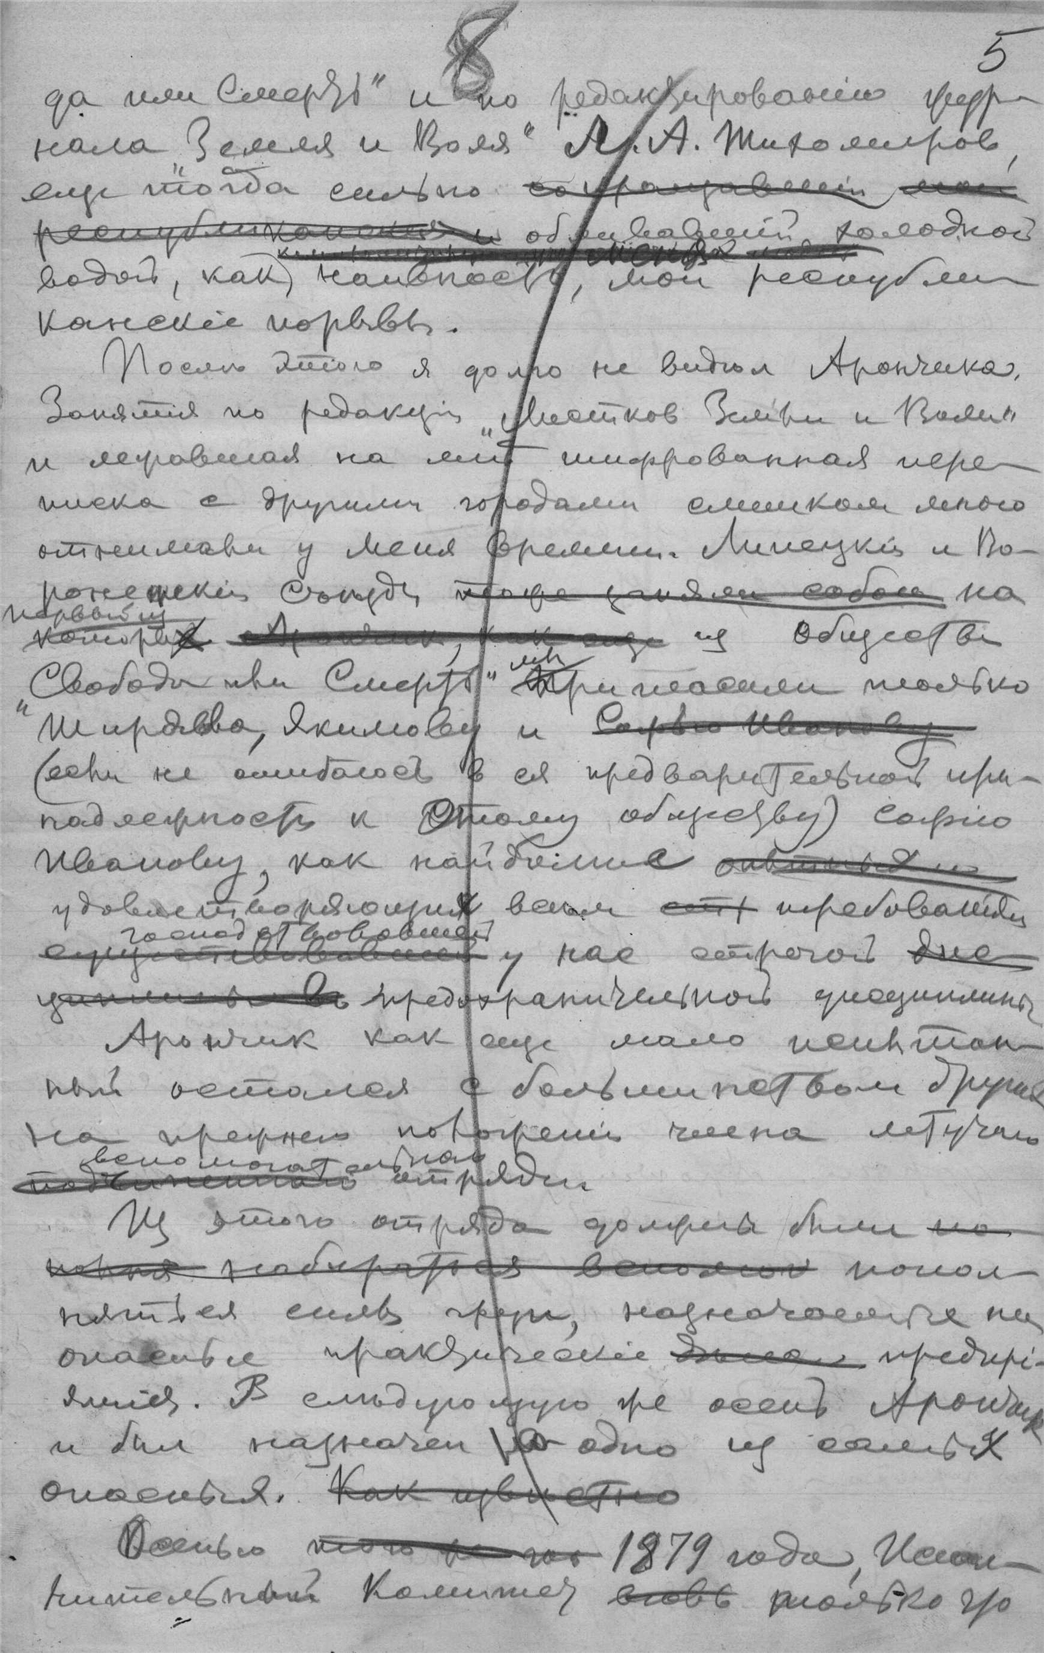 8 5
да или Смерть" и по редактированію жур-
нала "Земля и Воля" Л. А. Тихомиров,
еще тогда сильно сокращавшій мои
республиканскія и обливавшій холодной
водой, как наивность, мои республи-
канскіе порывы.
Послѣ этого я долго не видѣл Арончика.
Занятія по редакціи „Листков Земли и Воли"
и лежавшая на мнѣ шифрованная пере-
писка с другими городами слишком много
отнимали у меня времени. Липецкій и Во-
ронежскій съѣзды тоже заняли собою на
первый из
которых Арончик, как еще из Общества
„Свобода или Смерть" мы пригласили только
Ширяева, Якимову и Софью Иванову
(если не ошибаюсь в ея предварительной при-
надлежности к этому обществу) Софію
Иванову, как наиболѣе опытных и
удовлетворяющих всѣм требованіям
господствовавшей
существовавшей у нас строгой дис
циплины предохранительной дисциплины
Арончик как еще мало испытан-
ный остался с большинством других
на прежнем положеніи члена летучаго
вспомогательнаго
подчиненнаго отряда
Из этого отряда должны были по
набираться попол-
няться силы групп, назначаемыя на
опасные практическіе предпрі-
ятія. В слѣдующую же осень Арончик
и был назначен в одно из самых
опасных. Как извѣстно
Осенью того же год 1879 года, Испол-
нительный Комитет только что